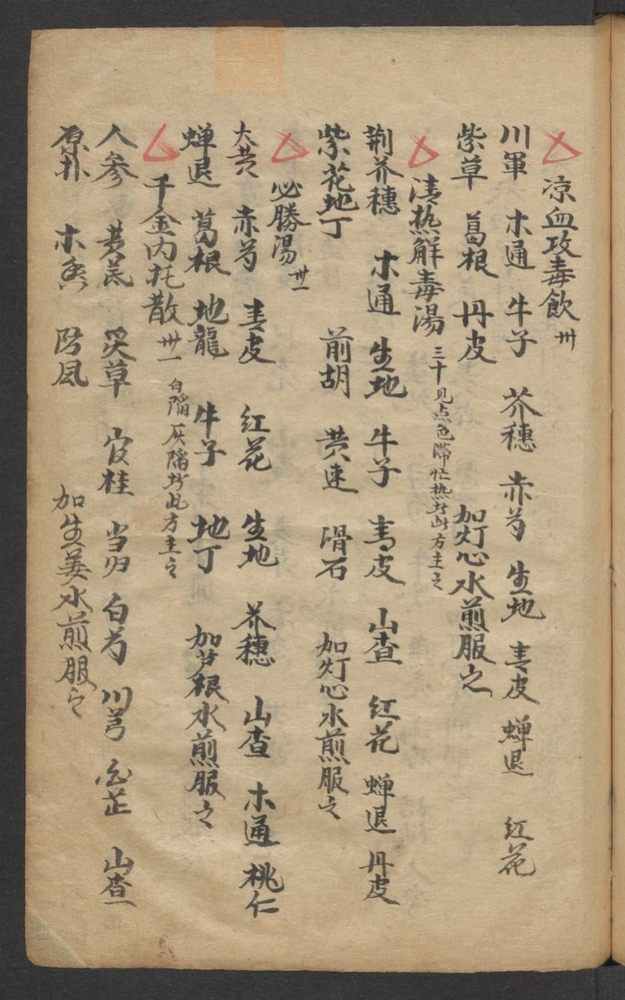 凉血攻毒飲 卅
川軍 木通 牛子 芥穗 赤芍 生地 青皮 蟬退 红花
紫草 葛根 丹皮 加灯心水煎服之
清热解毒湯 三十見点色滞忙热甚此方主之
荆芥穗 木通 生地 牛子 青皮 山查 红花 蟬退 丹皮
紫花地丁 前胡 黄連 滑石 加灯心水煎服之
必勝湯 卅一
大黄 赤芍 青皮 红花 生地 芥穗 山查 木通 桃仁
蟬退 葛根 地龍 牛子 地丁 加芦根水煎服之
千金内托散 卅一 白陷灰陷者此方主之
人參 黄芪 炙草 官桂 当归 白芍 川芎 白芷 山查
厚朴 木香 防風 加生姜水煎服之